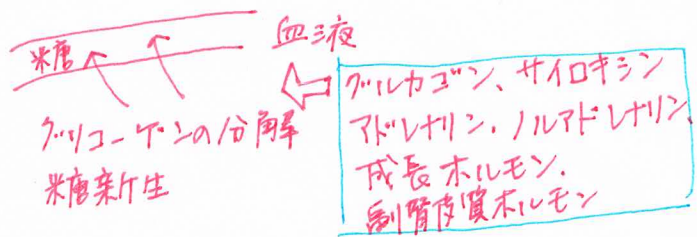 血液
糖
グリコーゲンの分解
糖新生
グルカゴン、サイロキシン
アドレナリン、ノルアドレナリン
成長ホルモン、
副腎皮質ホルモン